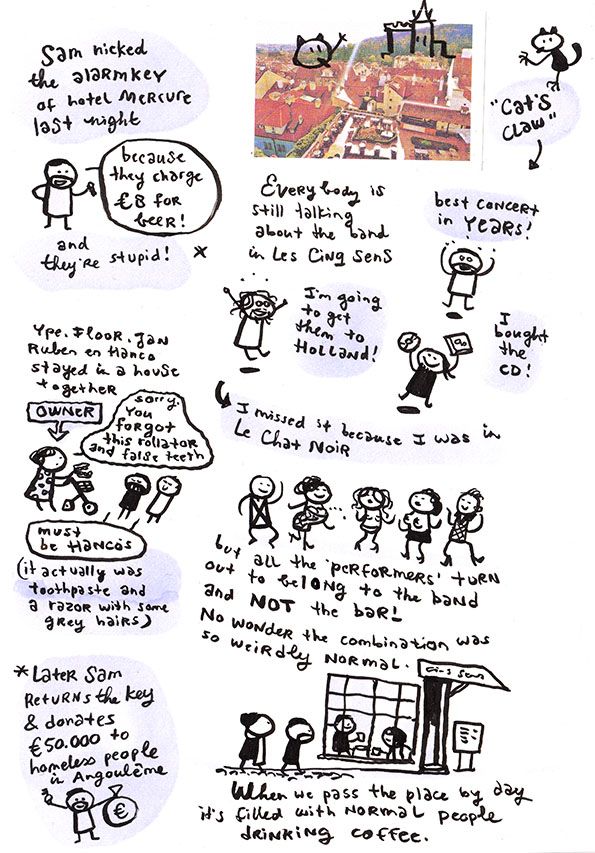 Sam nicked
the alarmkey
of hotel Mercure
last night
because
they charge
€8 for
beer!
and
they're stupid! *
"Cat's
Claw"
Everybody is
still talking
about the band
in Les Cinq Sens
best concert
in YEARS!
I'm going
to get
them to
HOLLAND!
I
bought
the
CD!
I missed it because I was in
Le Chat Noir
Ype, Floor, Jan
Ruben en Hanco
stayed in a house
together
OWNER
sorry,
You
forgot
this rollator
and false teeth
must
be Hanco's
(it actually was
toothpaste and
a razor with some
grey hairs)
€
but all the 'performers' turn
out to beLONG to the band
and NOT the bar!
No wonder the combination was
so weirdly NORMAL.
* Later Sam
Returns the key
& donates
€50.000 to
homeless people
in Angoulême
€
Cinq Sens
When we pass the place by day
it's filled with NORMAL people
drinking coffee.